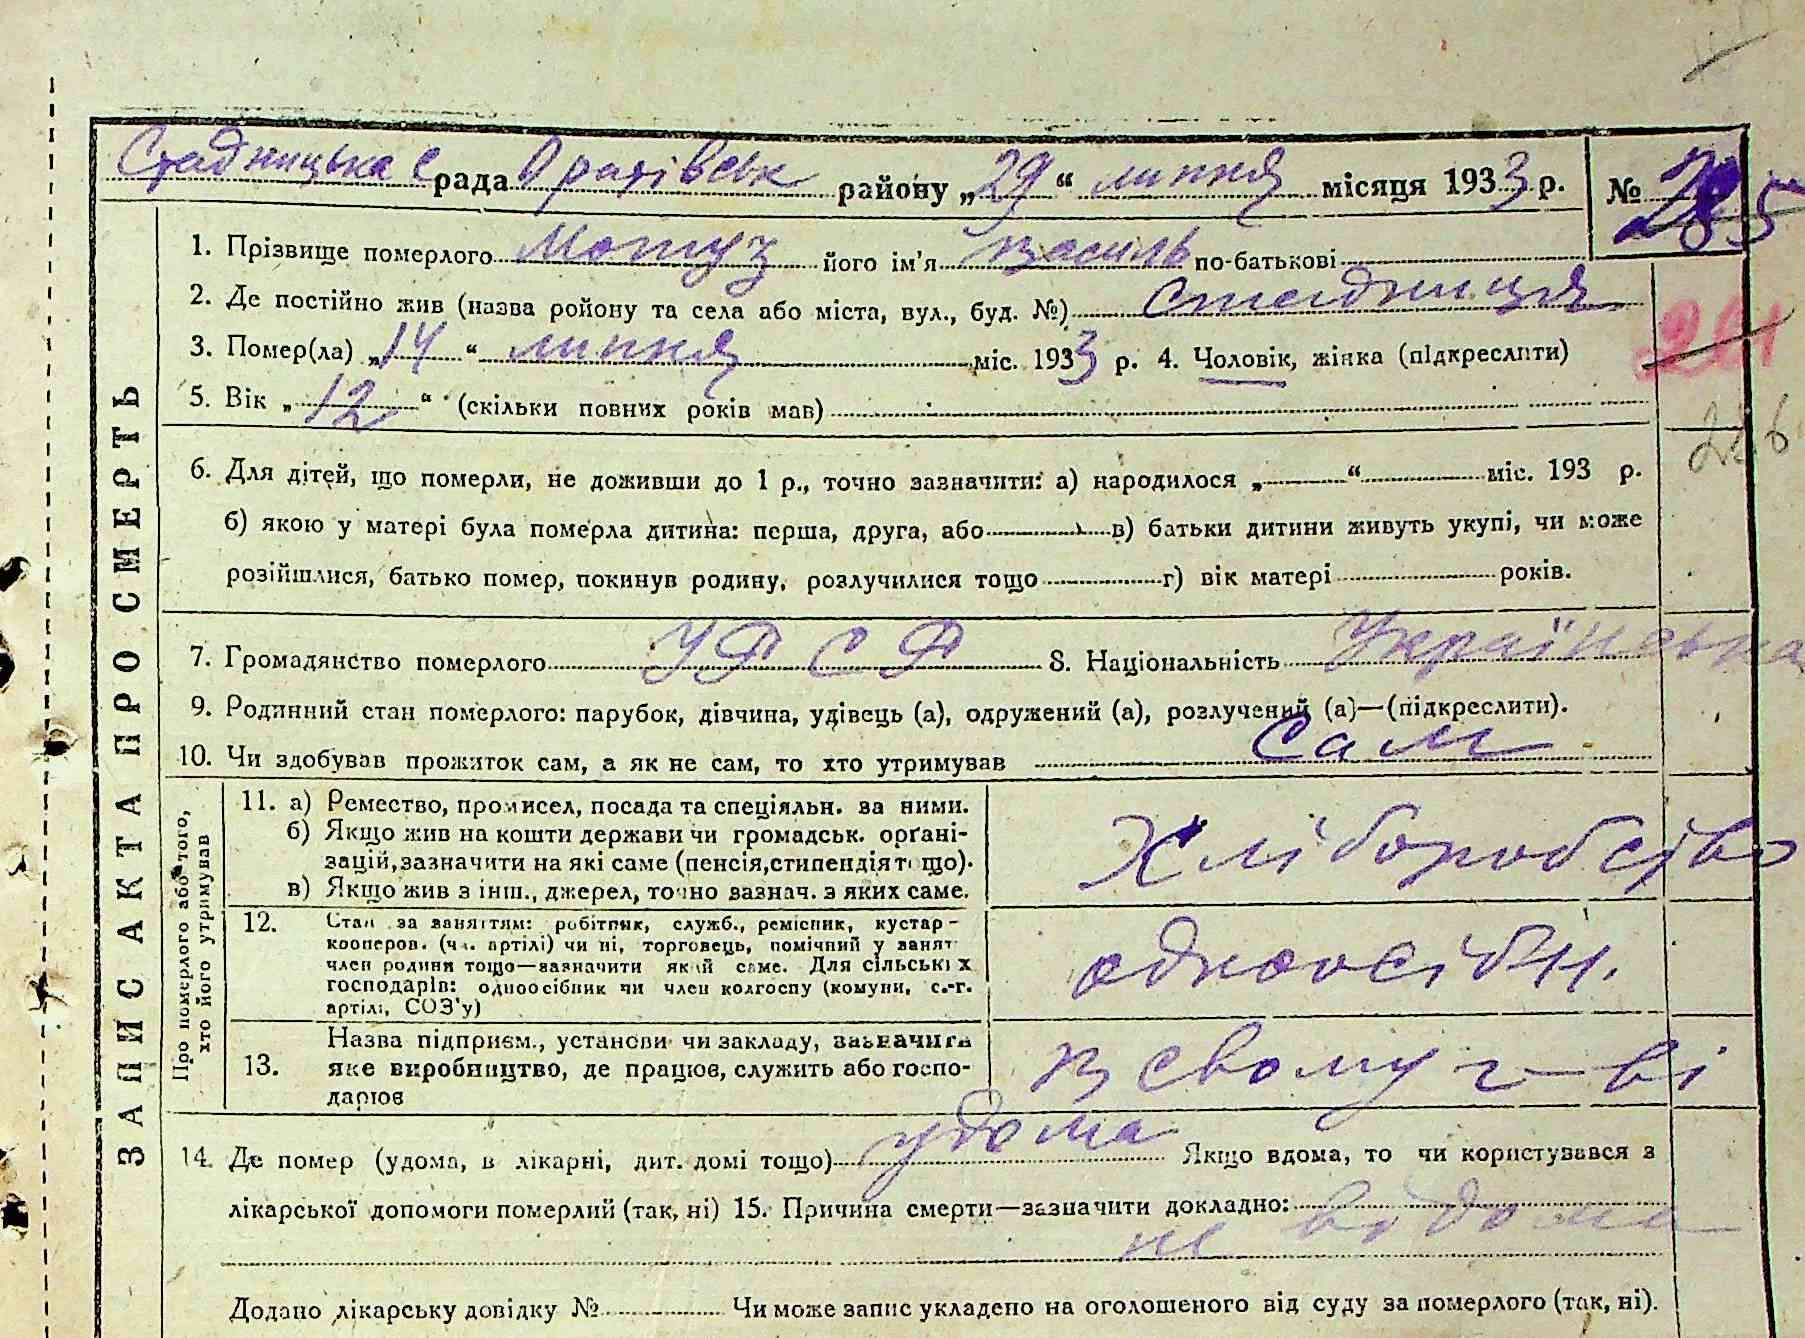 Стадницька с рада Оратівськ району „29“ липня місяця 1933 р. №
1. Прізвище померлого Мотуз його ім'я Василь по-батькові
2. Де постійно жив (назва ройону та села або міста, вул., буд. №) Стадниця
261
3. Помер(ла) „14“ липня міс. 1933 р. 4. Чоловік, жінка (підкреслити)
5. Вік „12“ (скільки повних років мав)
6. Для дітей, що померли, не доживши до 1 р., точно зазначити: а) народилося „ “ міс. 193 р.
б) якою у матері була померла дитина: перша, друга, або в) батьки дитини живуть укупі, чи може
розійшлися, батько помер, покинув родину, розлучилися тощо г) вік матері років.
7. Громадянство померлого УРСР 8. Національність Українська
9. Родинний стан померлого: парубок, дівчина, удівець (а), одружений (а), розлучений (а)—(підкреслити).
10. Чи здобував прожиток сам, а як не сам, то хто утримував сам
ЗАПИС АКТА ПРО СМЕРТЬ
Про померлого або того,
хто його утримував
11. а) Ремество, промисел, посада та спеціяльн. за ними.
б) Якщо жив на кошти держави чи громадськ. орґані-
зацій, зазначити на які саме (пенсія, стипендія тощо).
в) Якщо жив з інш., джерел, точно зазнач. з яких саме.
Хліборобство
12. Стан за заняттям: робітник, служб., ремісник, кустар-
кооперов. (чл. артілі) чи ні, торговець, помічний у занят
член родини тощо—зазначити який саме. Для сільських
господарів: одноосібник чи член колгоспу (комуни, с.-г.
артілі, СОЗ'у)
одноосібн.
13. Назва підприєм., установи чи закладу, зазначити
яке виробництво, де працює, служить або госпо-
дарює
в свому г-ві
14. Де помер (удома, в лікарні, дит. домі тощо) удома Якщо вдома, то чи користувався з
лікарської допомоги померлий (так, ні) 15. Причина смерти—зазначити докладно:
не відома
Додано лікарську довідку № Чи може запис укладено на оголошеного від суду за померлого (так, ні).